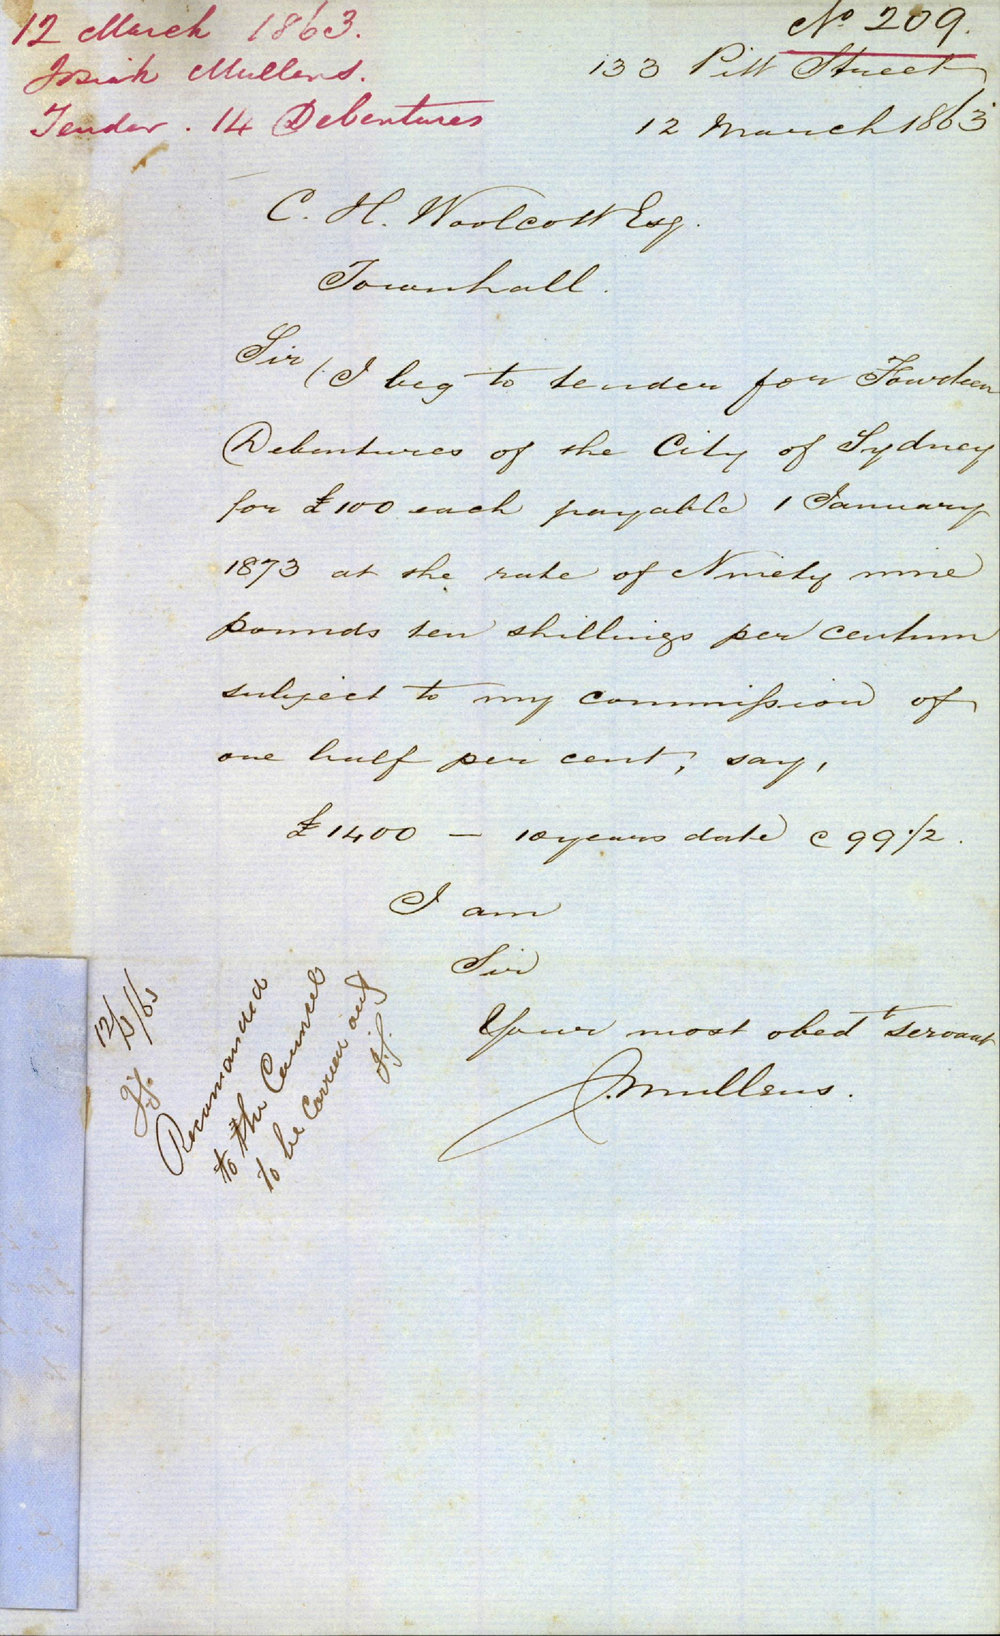 12 March 1863.
Josiah Mullens.
Tender. 14 Debentures
No 209.
133 Pitt Street
12 March 1863
C. H. Woolcott Esq.
Townhall.
Sir
I beg to tender for Fourteen
Debentures of the City of Sydney
for £100 each payable 1 January
1873 at the rate of Ninety nine
pounds ten shillings per centum
subject to my commission of
one half per cent; say,
£1400 — 10 years date @ 99 1/2.
I am
Sir
Your most obedt servant
J. Mullens.
12/3/63
Recommended
to the Council
to be carried out